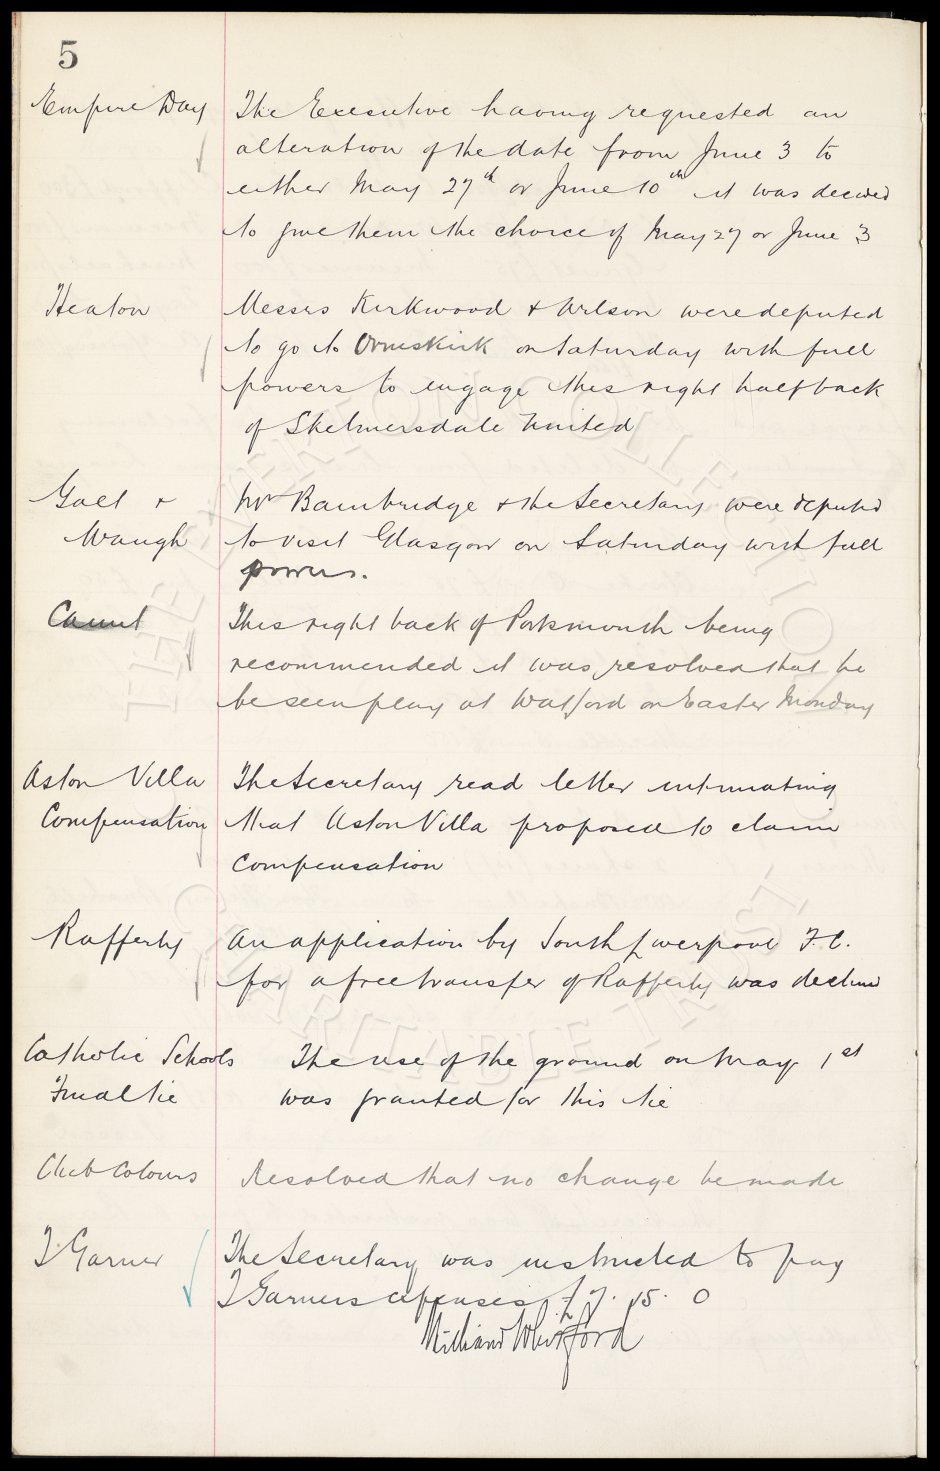 5
Empire Day The Executive having requested an
alteration of the date from June 3 to
either May 27th or June 10th it was decided
to give them the choice of May 27 or June 3
Heaton Messrs Kirkwood & Wilson were deputed
to go to Ormskirk on Saturday with full
powers to engage this right half back
of Skelmersdale United
Galt & Mr Bainbridge & the Secretary were deputed
Waugh to visit Glasgow on Saturday with full
powers.
This right back of Portsmouth being
recommended it was resolved that he
be seen play at Watford on Easter Monday
Aston Villa The Secretary read letter intimating
Compensation that Aston Villa proposed to claim
Compensation
Rafferty An application by South Liverpool F.C.
for a free transfer of Rafferty was declined
Catholic Schools The use of the ground on May 1st
Final tie was granted for this tie
Club Colours Resolved that no change be made
T Garner The Secretary was instructed to pay
T Garners expenses £7. 15. 0
William Whitford